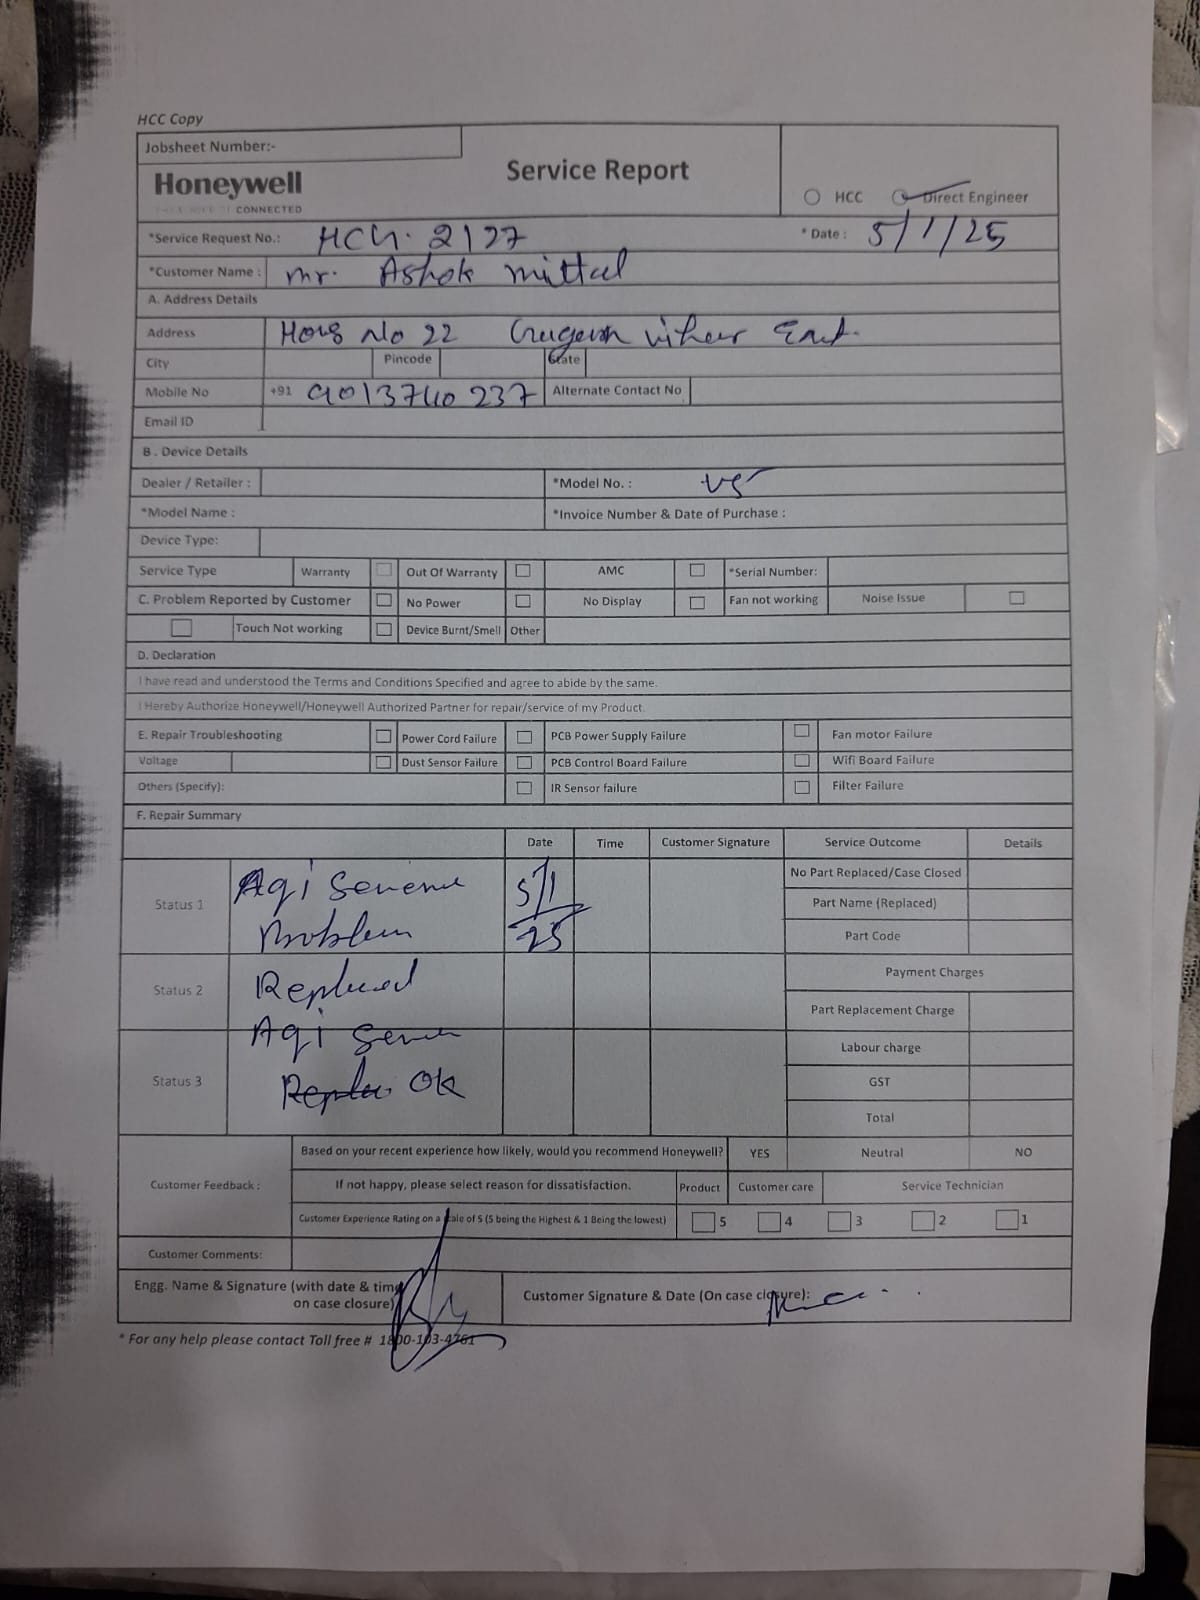 HCC Copy
Jobsheet Number:-
Honeywell
CONNECTED
Service Report
HCC Direct Engineer
*Service Request No.: HCH. 2127 * Date : 5/1/25
*Customer Name : mr. Ashok mittal
A. Address Details
Address No 22 vihar East.
City Pincode State
Mobile No +91 9013740237 Alternate Contact No
Email ID
B . Device Details
Dealer / Retailer : *Model No. : V5
*Model Name : *Invoice Number & Date of Purchase :
Device Type:
Service Type Warranty Out Of Warranty AMC *Serial Number:
C. Problem Reported by Customer No Power No Display Fan not working Noise Issue
Touch Not working Device Burnt/Smell Other
D. Declaration
I have read and understood the Terms and Conditions Specified and agree to abide by the same.
I Hereby Authorize Honeywell/Honeywell Authorized Partner for repair/service of my Product.
E. Repair Troubleshooting Power Cord Failure PCB Power Supply Failure Fan motor Failure
Voltage Dust Sensor Failure PCB Control Board Failure Wifi Board Failure
Others (Specify): IR Sensor failure Filter Failure
F. Repair Summary
Date Time Customer Signature Service Outcome Details
Status 1 Aqi 5/1 No Part Replaced/Case Closed
Problem 25 Part Name (Replaced)
Part Code
Status 2 Replaced Payment Charges
Part Replacement Charge
Aqi
Labour charge
Status 3 OK GST
Total
Customer Feedback : Based on your recent experience how likely, would you recommend Honeywell? YES Neutral NO
If not happy, please select reason for dissatisfaction. Product Customer care Service Technician
Customer Experience Rating on a scale of 5 (5 being the Highest & 1 Being the lowest) 5 4 3 2 1
Customer Comments:
Engg. Name & Signature (with date & time
on case closure) Customer Signature & Date (On case closure):
* For any help please contact Toll free # 1800-103-4761